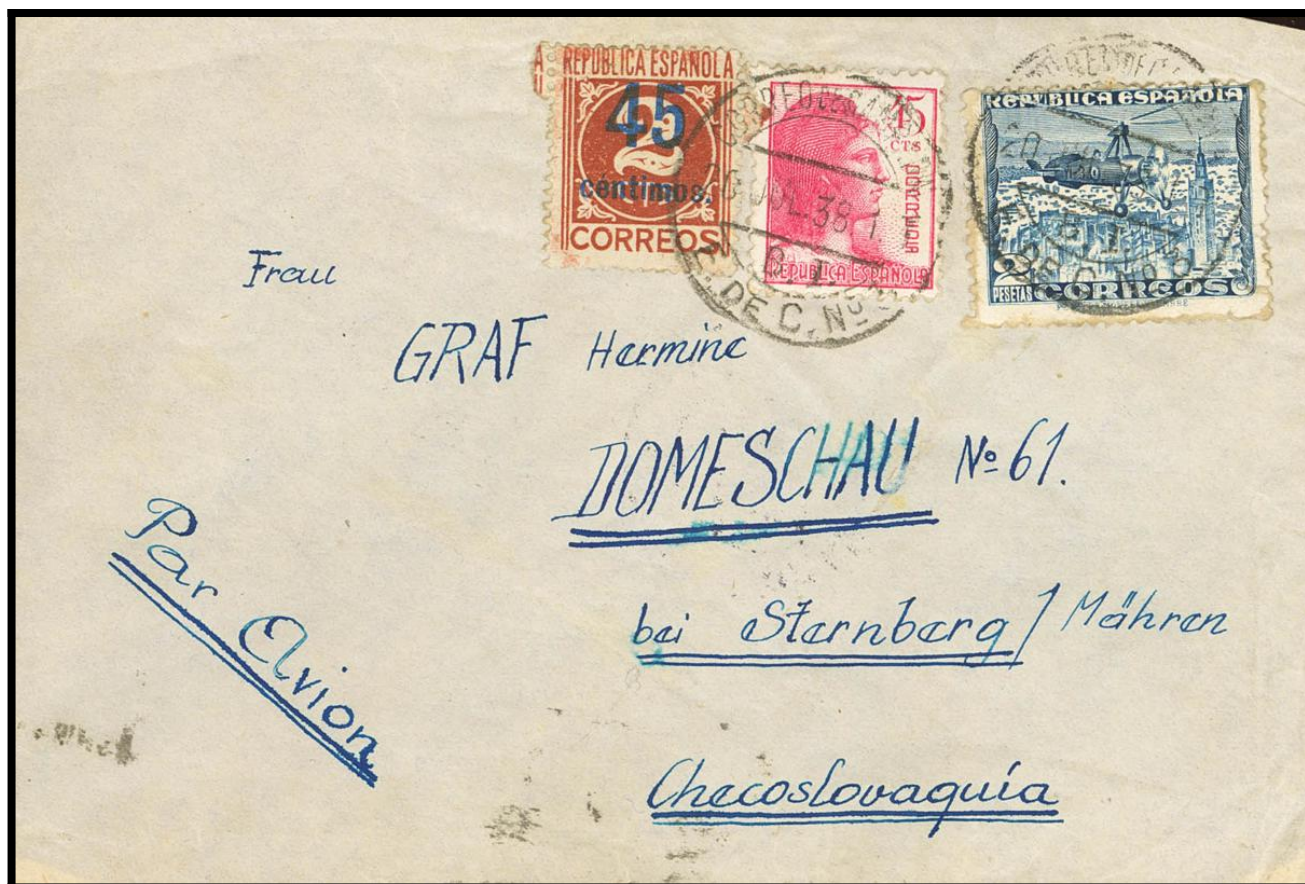 A REPUBLICA ESPAÑOLA
45
2
céntimos.
CORREOS
45
CTS
REPUBLICA ESPAÑOLA
REPUBLICA ESPAÑOLA
2
PESETAS CORREOS
JUL. 38
DE C. Nº
Frau
GRAF Hermine
DOMESCHAU № 61.
bei Sternberg / Mähren
Checoslovaquía
Par Avion